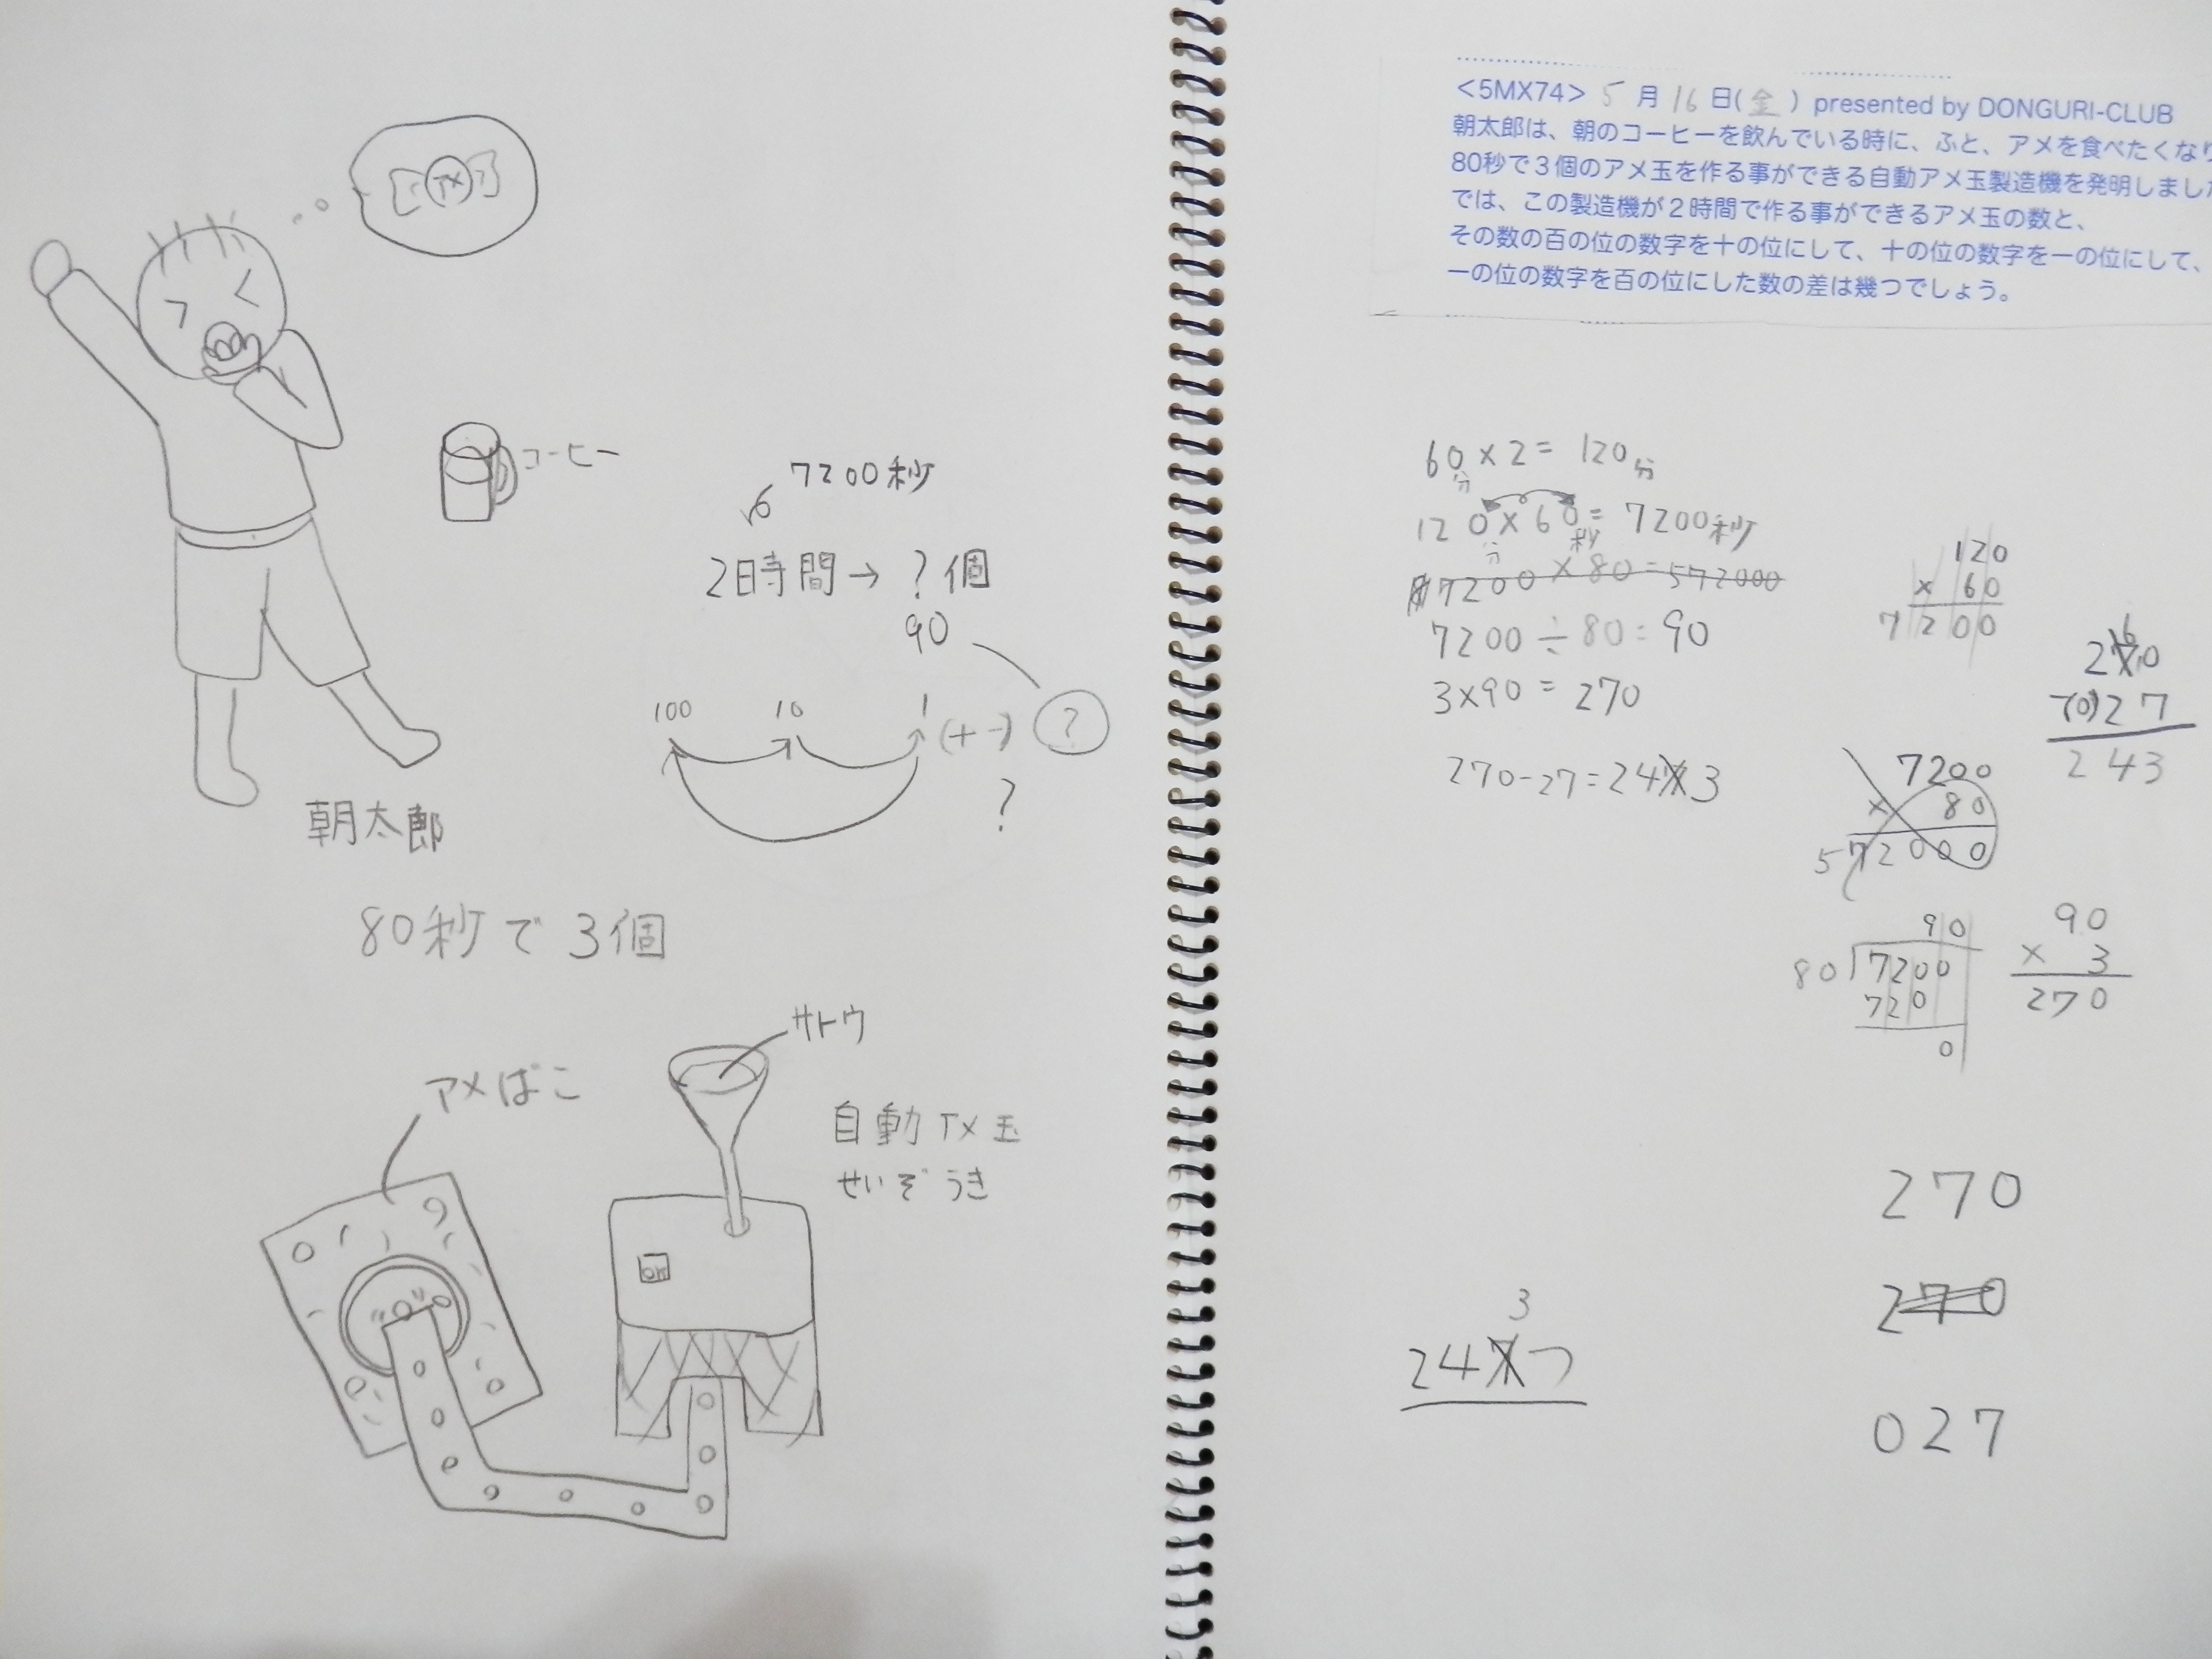 アメ
コーヒー
7200秒
2時間→?個
90
100 10 1 (+-) ?
?
朝太郎
80秒で3個
サトウ
アメばこ
自動アメ玉
せいぞうき
<5MX74> 5月16日(金) presented by DONGURI-CLUB
朝太郎は、朝のコーヒーを飲んでいる時に、ふと、アメを食べたくなり
80秒で3個のアメ玉を作る事ができる自動アメ玉製造機を発明しました
では、この製造機が2時間で作る事ができるアメ玉の数と、
その数の百の位の数字を十の位にして、十の位の数字を一の位にして、
一の位の数字を百の位にした数の差は幾つでしょう。
60分×2=120分
120分×60秒=7200秒
7200×80=572000
7200÷80=90
3×90=270
270-27=243
120
× 60
7200
6
270
-(0)27
243
7200
× 80
572000
90
80)7200
720
0
90
× 3
270
270
270
027
3
24つ